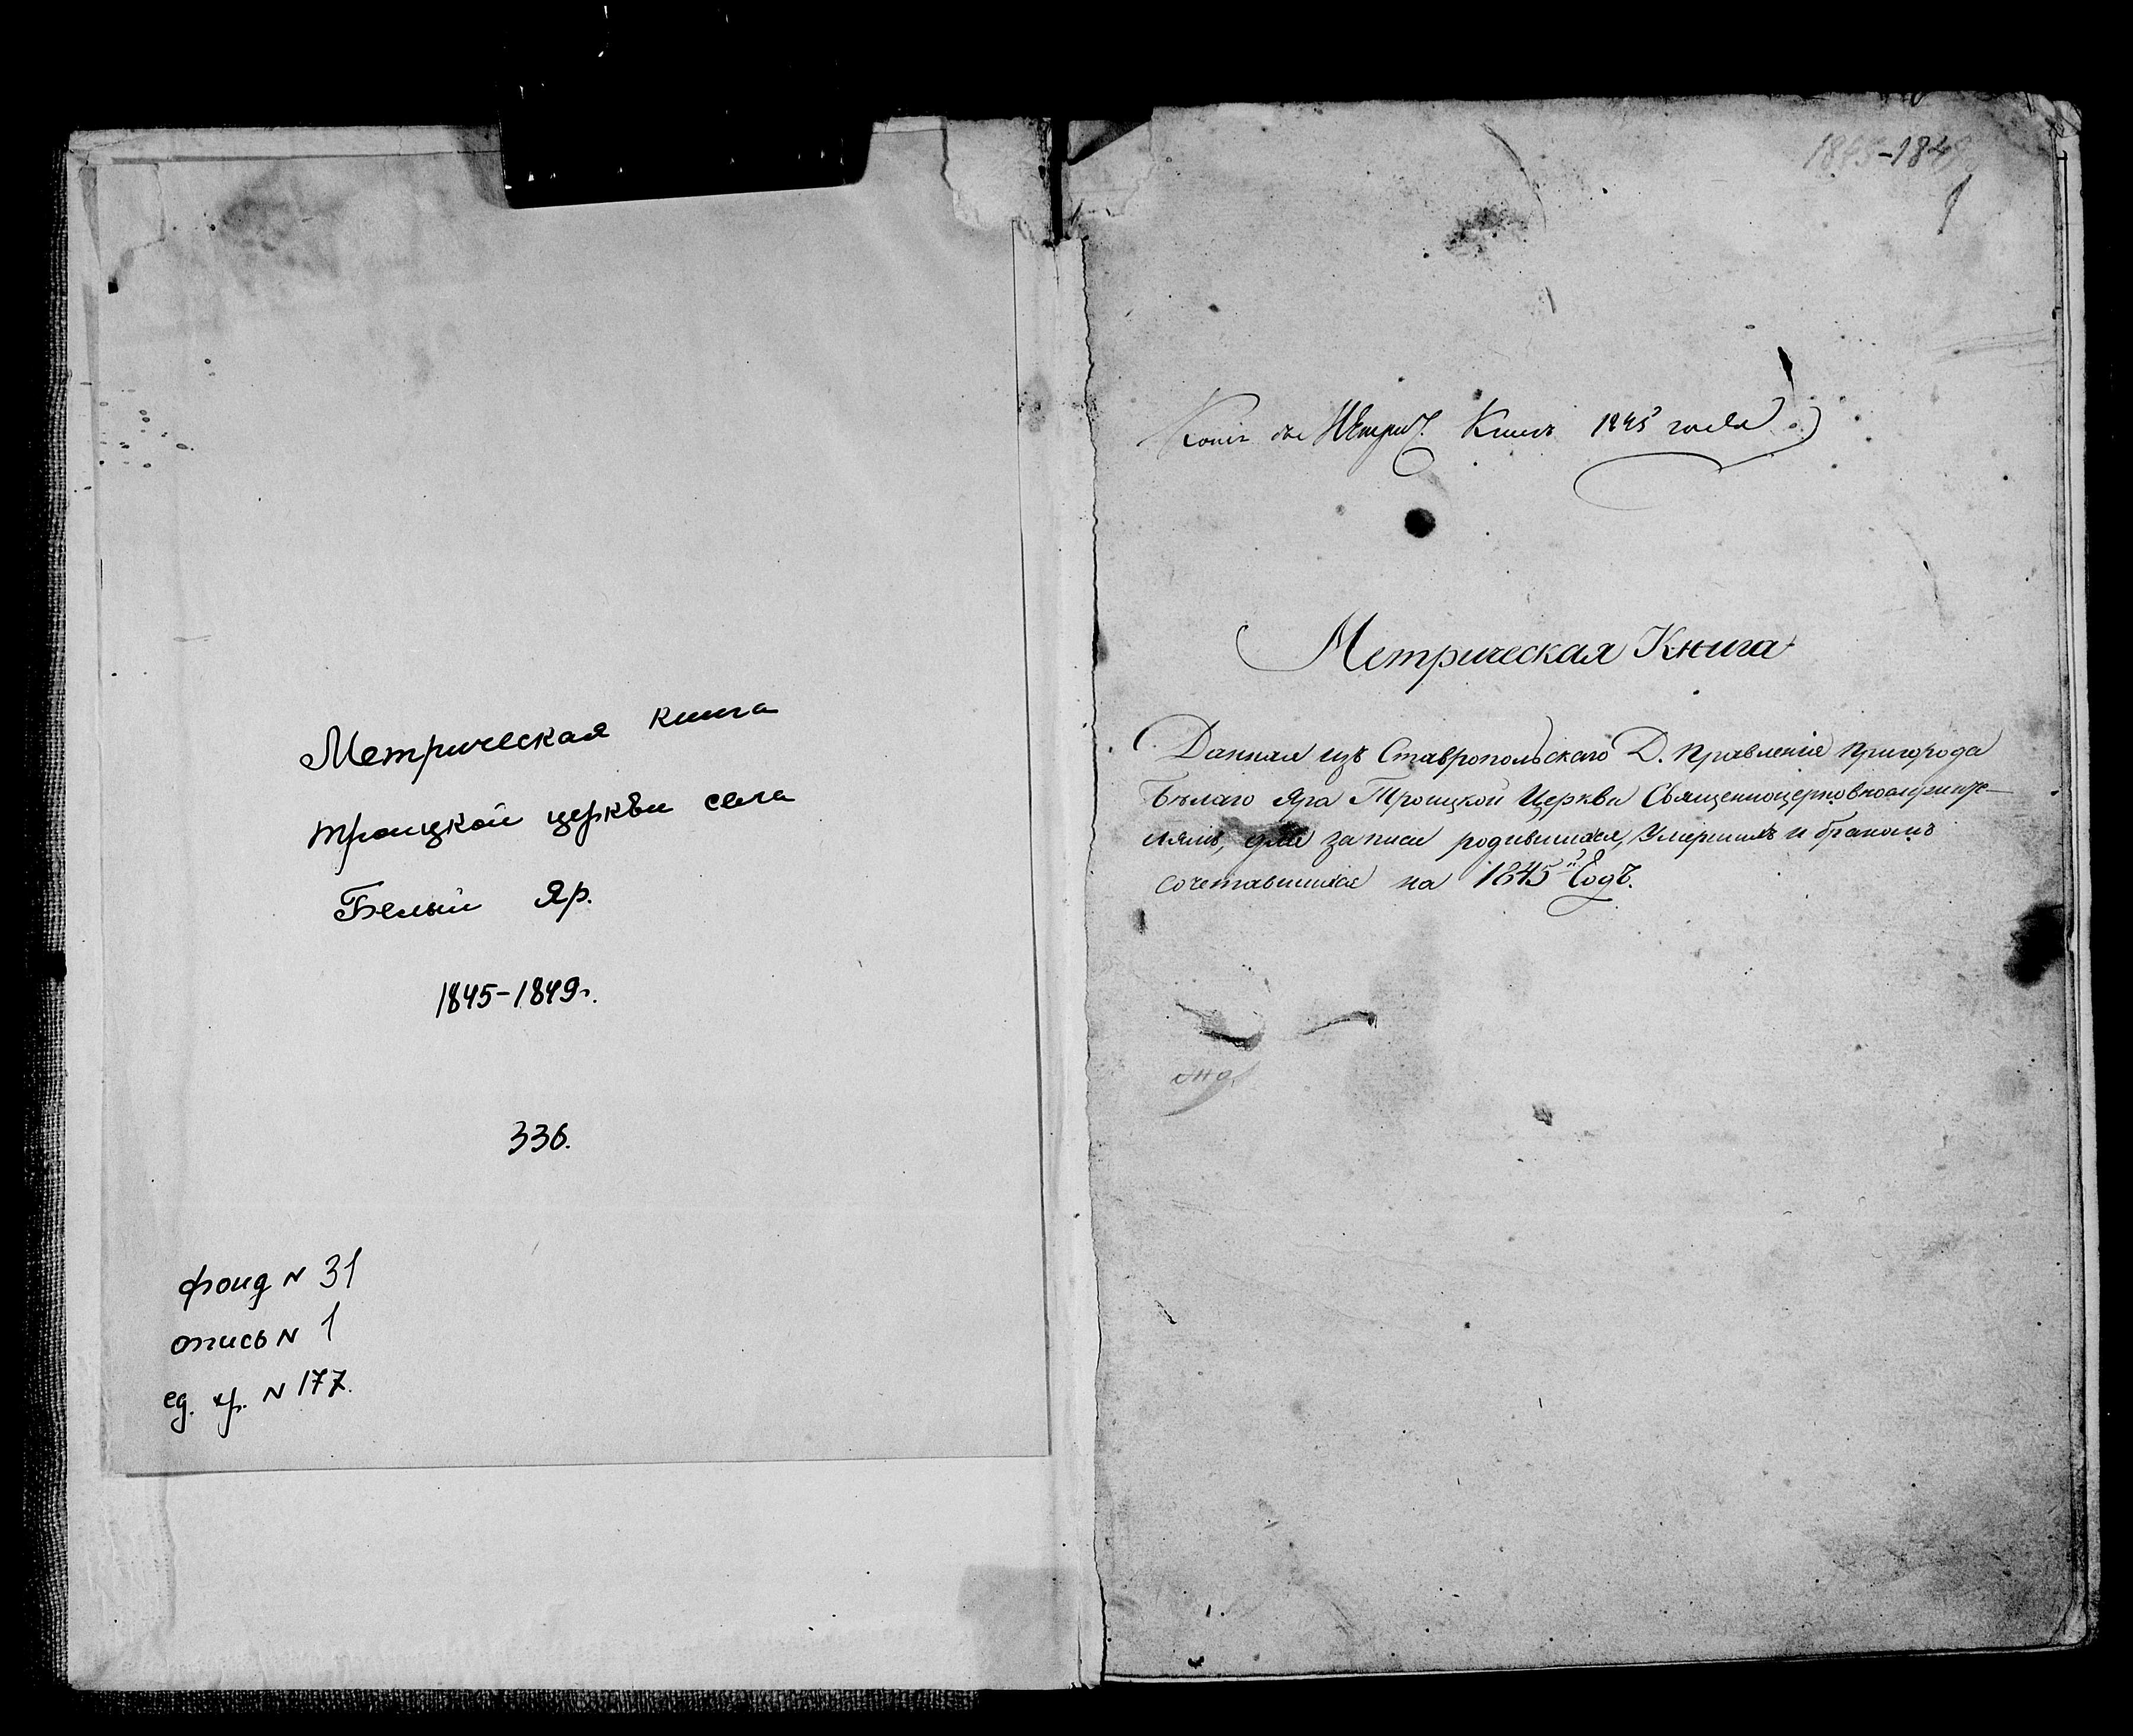 Метрическая книга
троицкой церкви села
Белый Яр.
1845-1849г.
336.
фонд N 31
опись N 1
ед. хр. N 177.
1845-1849
1
Копiя Метрич. Книгъ 1845 года
Метрическая Книга
Данная изъ Ставропольскаго Д. Правленiя пригорода
Бѣлаго Яра Троицкой Церкви Священноцерковнослужи-
лямъ, для записи родившихся, Умершихъ и бракомъ
сочетавшихся на 1845й Годъ.